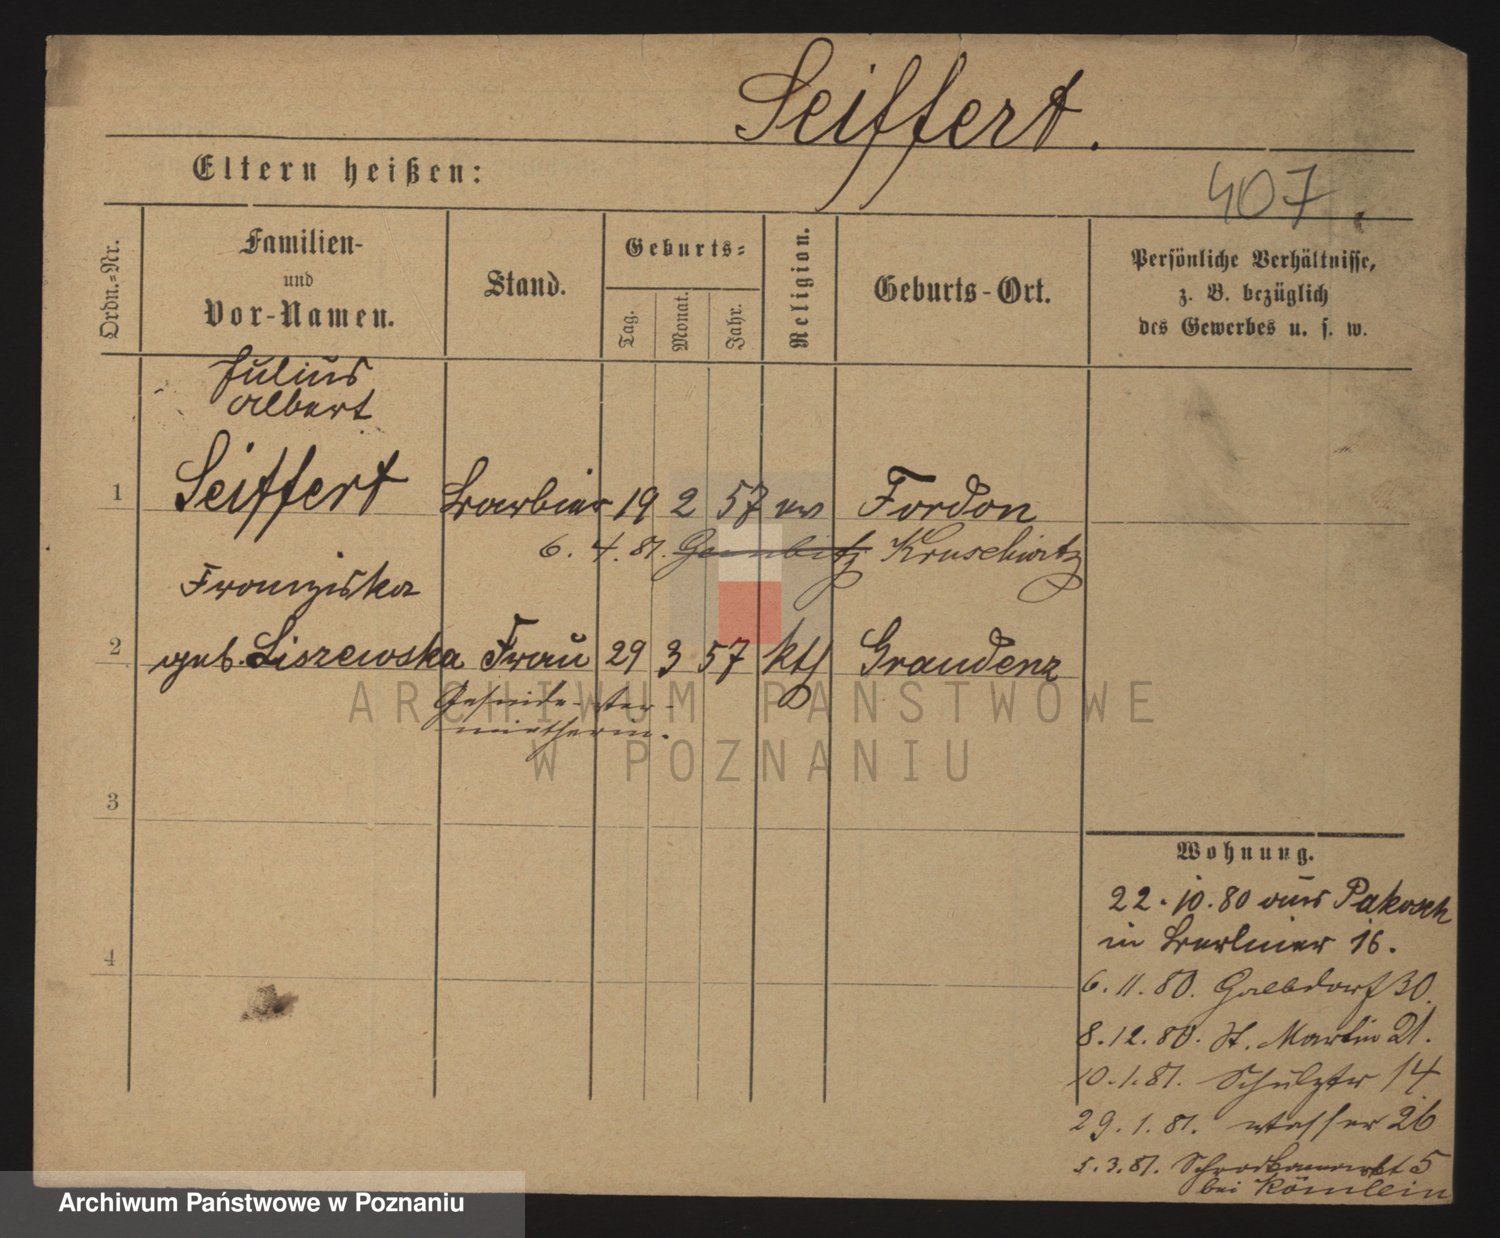 Seiffert.
Eltern heißen:
407.
Ordn.-Nr.
Familien-
und
Vor-Namen.
Stand.
Geburts-
Tag.
Monat.
Jahr.
Religion.
Geburts-Ort.
Persönliche Verhältnisse,
z. B. bezüglich
des Gewerbes u. s. w.
Julius
Albert
1 Seiffert Barbier 19 2 57 ev Fordon
6. 4. 81. Gembitz Kruschwitz
Franziska
2 geb. Liszewska Frau 29 3 57 kth Graudenz
Gesinde-ver-
mietherin.
ARCHIWUM PAŃSTWOWE
W POZNANIU
3
4
Wohnung.
22.10.80 aus Pakosch
in Berliner 16.
6.11.80. Halbdorf 30.
8.12.80. St. Martin 21.
10.1.81. Schützstr 14
29.1.81. Wasser 26
5.3.81. Schrodkamarkt 5
bei Römlein
Archiwum Państwowe w Poznaniu